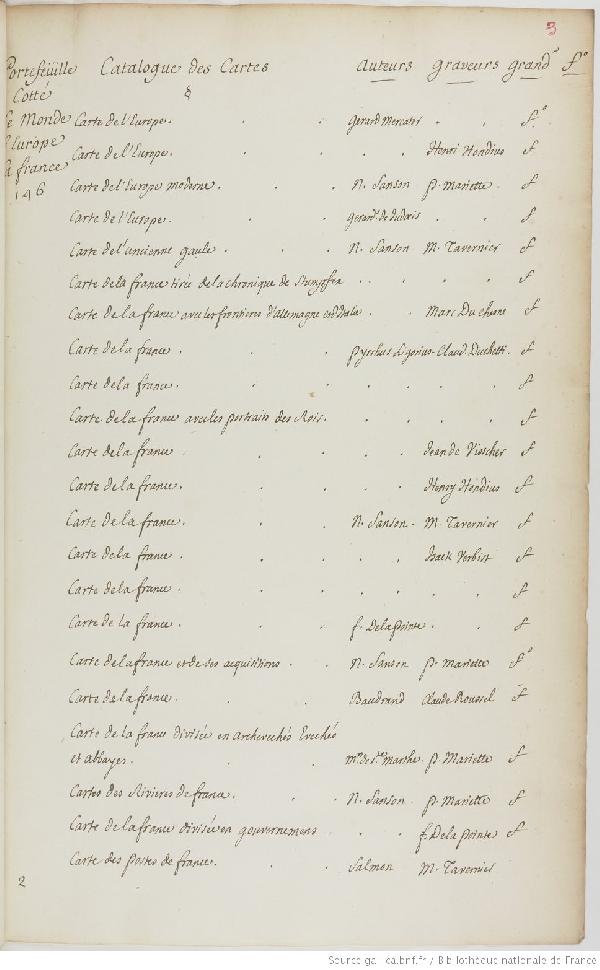 3
Portefeüille Catalogue des Cartes auteurs graveurs grand fo
Cotté
Le Monde
l'Europe
la france
146
Carte de l'Europe. gerard Mercater fo
Carte de l'Europe. Henri Hondius f
Carte de l'Europe moderne. N. Sanson p. Mariette. f
Carte de l'Europe. gerard de f
Carte de l'ancienne gaule. N. Sanson M. Tavernier f
Carte de la france tirée de la chronique de f
Carte de la france avec les frontieres d'allemagne et Marc Du chesne f
Carte de la france. pyrrhus Ligorius - Claud. Duchetti. f
Carte de la france. f
Carte de la france avec les portrais des Rois. f
Carte de la france. Jean de Visscher f
Carte de la france. Henry Hondius f
Carte de la france. N. Sanson - M. Tavernier f
Carte de la france. Isack Verbist f
Carte de la france. f
Carte de la france. f. De la pointe. f
Carte de la france et de ses acquisitions. N. Sanson p. Mariette fo
Carte de la france. Baudrand Claude Roussel f
Carte de la france divisée en archevechés Evechés
et abbayes. mrs de Ste marthe. p. Mariette f
Cartes des Rivieres de france. N. Sanson p. Mariette f
Carte de la france divisée en gouvernemens f. De la pointe f
Carte des postes de france. Salmon M. Tavernier
2
Source gallica.bnf.fr / Bibliothèque nationale de France